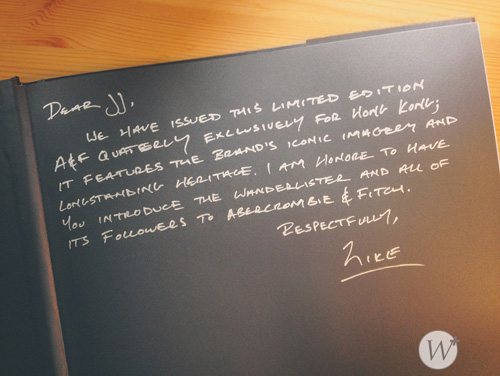 DEAR JJ,
WE HAVE ISSUED THIS LIMITED EDITION
A&F QUATERLY EXCLUSIVELY FOR HONG KONG;
IT FEATURES THE BRAND'S ICONIC IMAGERY AND
LONGSTANDING HERITAGE. I AM HONORE TO HAVE
YOU INTRODUCE THE WANDERLISTER AND ALL OF
ITS FOLLOWERS TO ABERCROMBIE & FITCH.
RESPECTFULLY,
W